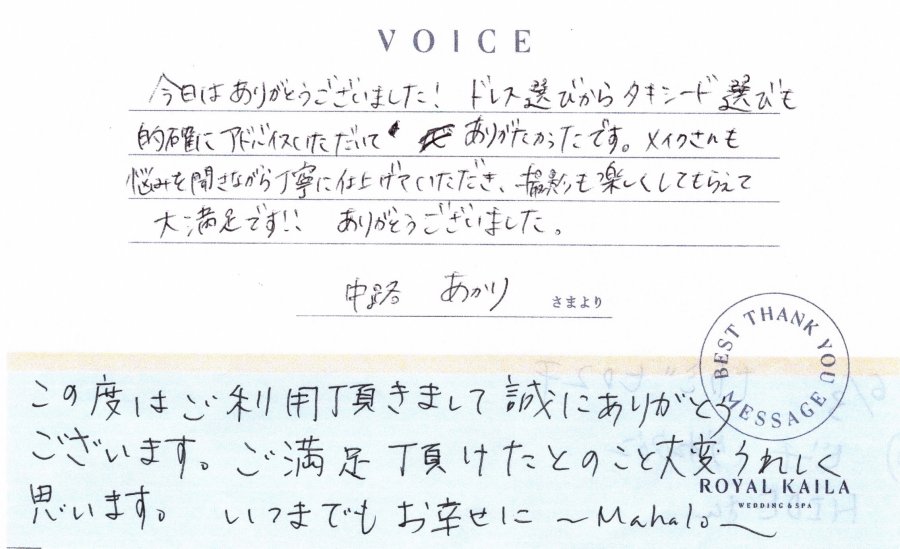 VOICE
今日はありがとうございました! ドレス選びからタキシード選びも
的確にアドバイスいただいて ありがたかったです。メイクさんも
悩みを聞きながら丁寧に仕上げていただき、撮影も楽しくしてもらえて
大満足です!! ありがとうございました。
中路 あかり さまより
BEST THANK YOU MESSAGE
この度はご利用頂きまして誠にありがとう
ございます。ご満足頂けたとのこと大変うれしく
思います。 いつまでもお幸せに ~Mahalo~
ROYAL KAILA
WEDDING & SPA